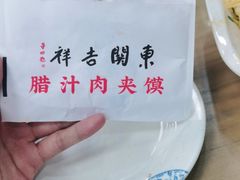 祥吉関東
腊汁肉夹馍